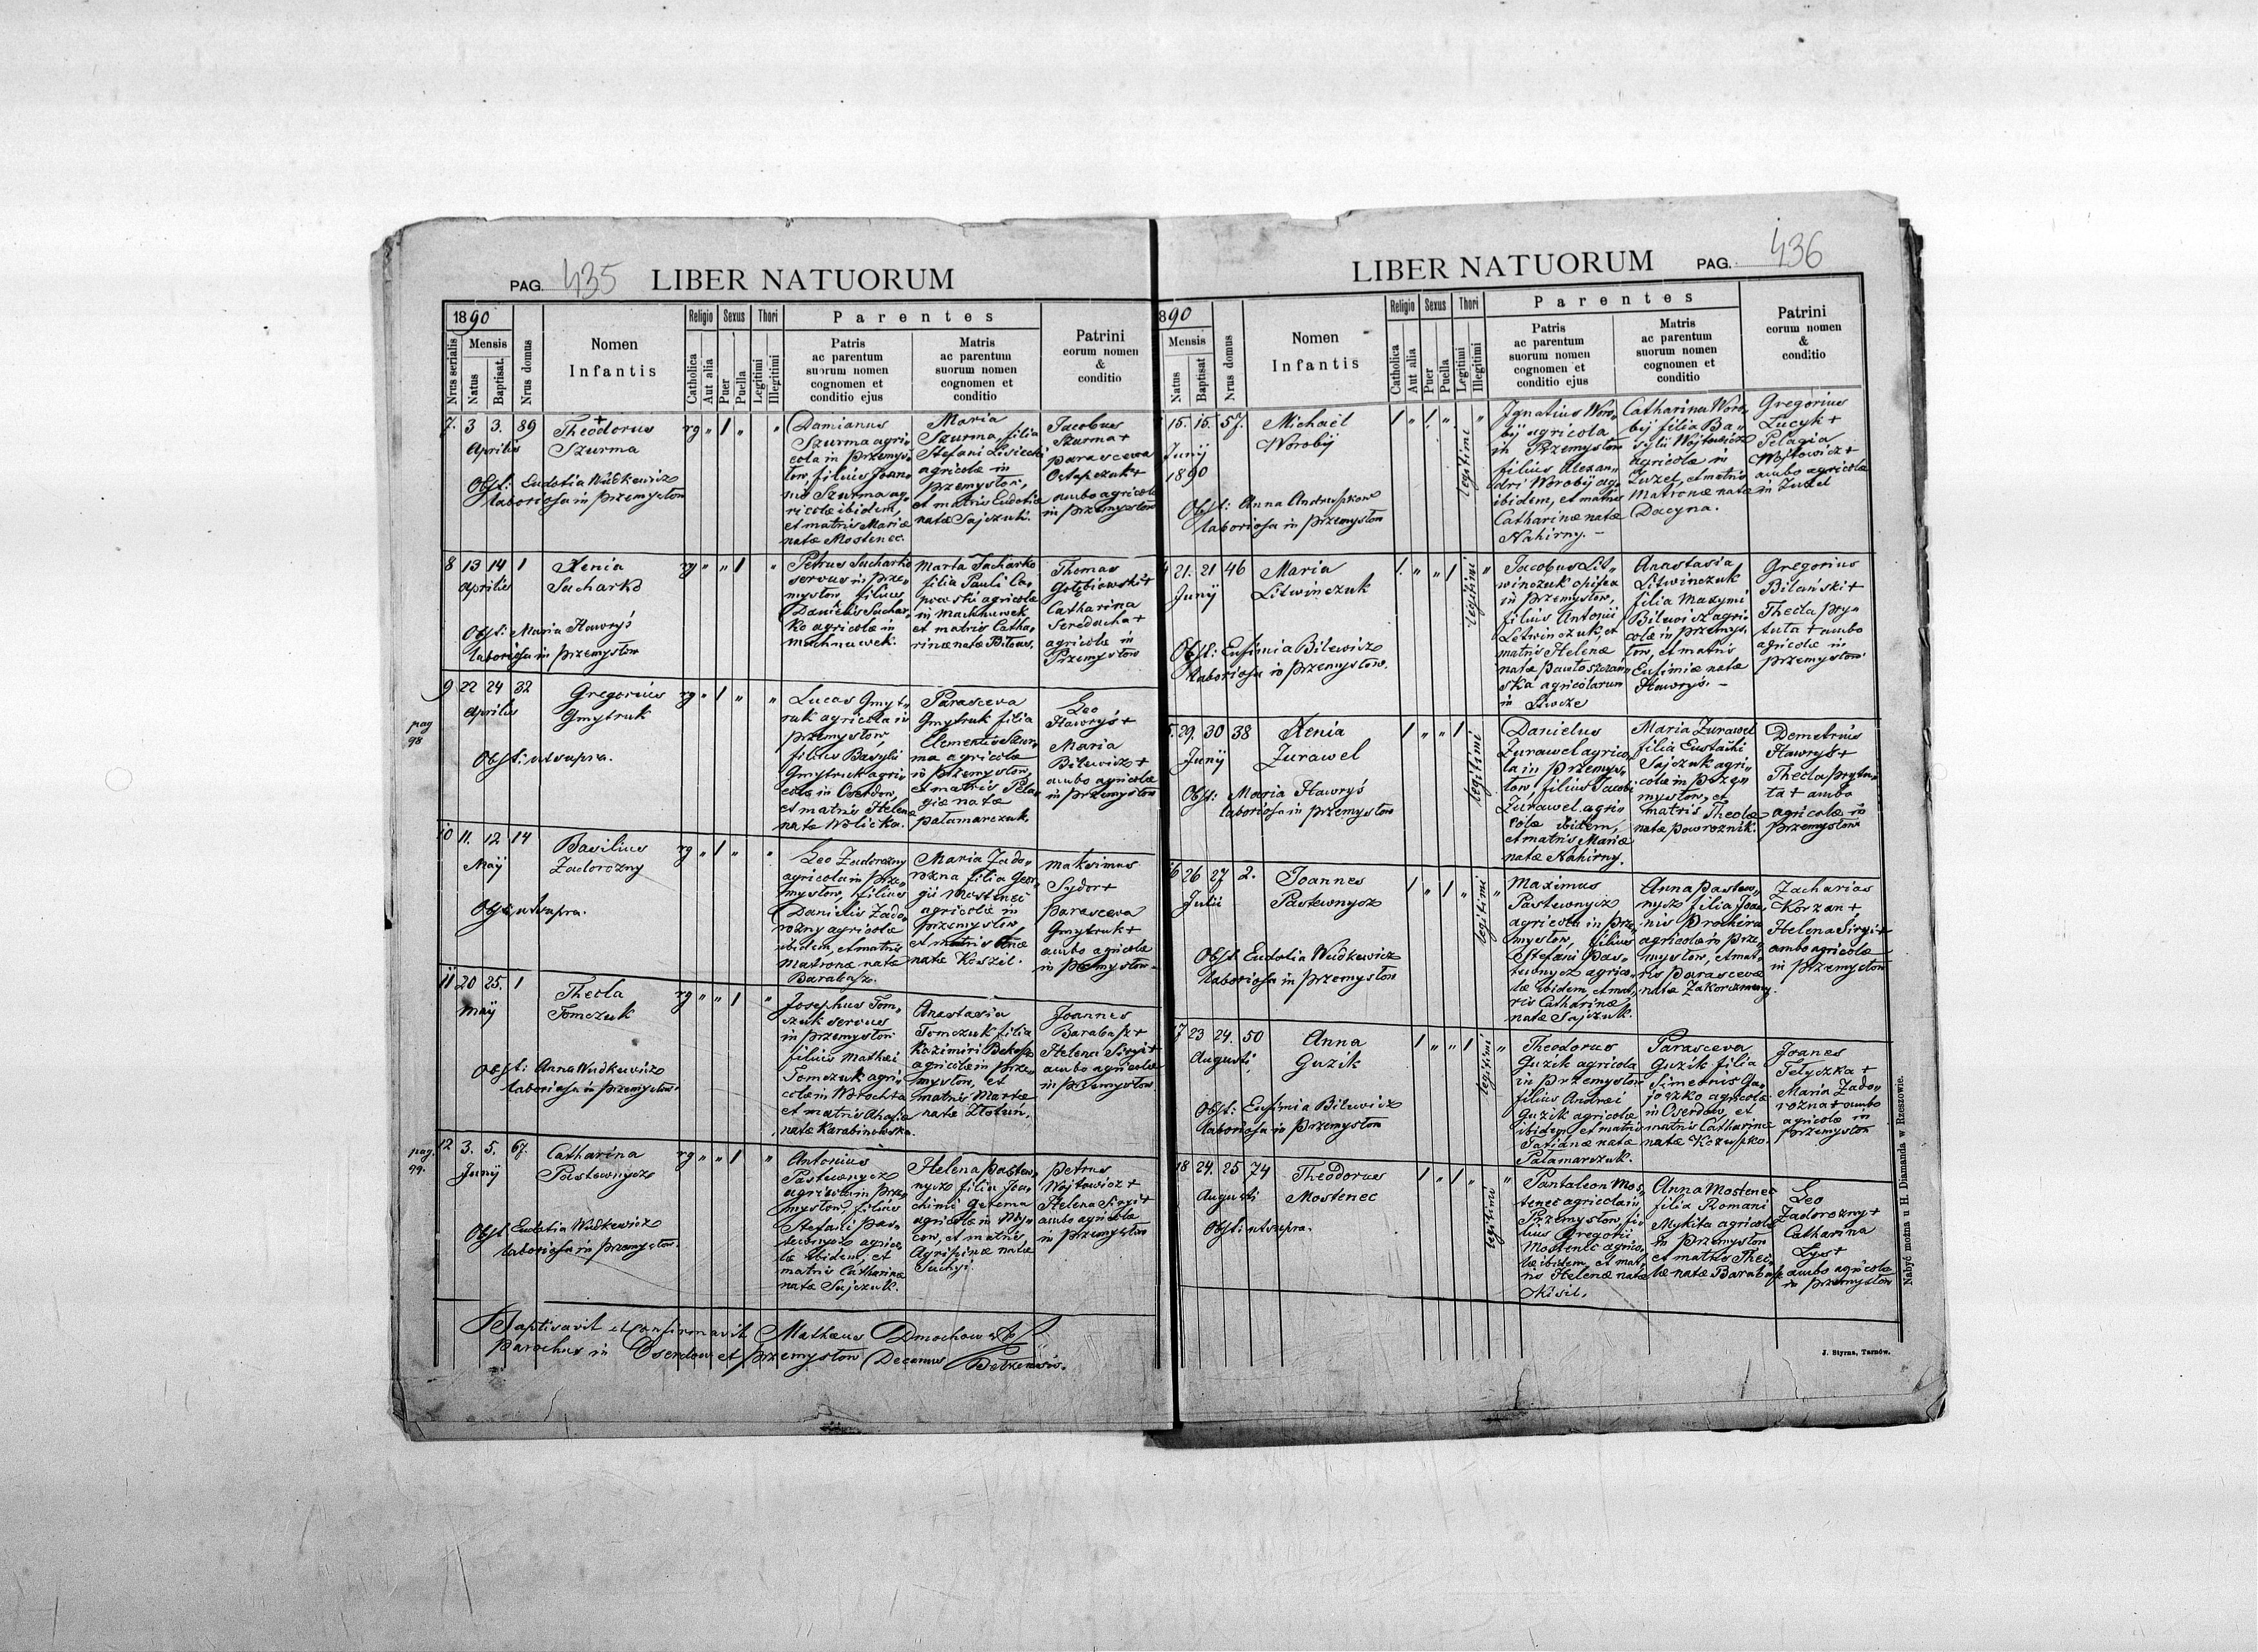 PAG. 435 LIBER NATUORUM
1890
Nrus serialis
Mensis
Natus
Baptisat.
Nrus domus
Nomen
Infantis
Religio
Catholica
Aut alia
Sexus
Puer
Puella
Thori
Legitimi
Illegitimi
Parentes
Patris
ac parentum
suorum nomen
cognomen et
conditio ejus
Matris
ac parentum
suorum nomen
cognomen et
conditio
Patrini
eorum nomen
&
conditio
7. 3 3. 89
Aprilis
Theodorus
Szurma
rg " 1 " "
Obst: Eudotia Wudkewicz
laboriosa in Przemysłow
Damianus
Szurma agri-
cola in Przemys-
low, filius Joan-
nis Szurma ag-
ricolæ ibidem,
et matris Mariæ
natæ Mostenec.
Maria
Szurma, filia
Stefani Lisiecki
agricolæ in
Przemysłow,
et matris Eudotiæ
natæ Sajczuk.
Jacobus
Szurma +
Parasceva
Ostapczuk +
ambo agricolæ
in Przemysłow
8 13 14 1
Aprilis
Xenia
Sucharko
rg " " 1 "
Obst: Maria Hawryś
laboriosa in Przemysłow
Petrus Sucharko
servus in Prze-
mysłow filius
Danielis Suchar-
ko agricolæ in
Machnuwek.
Marta Sucharko
filia Pauli
agricolæ
in Machnuwek
et matris Catha-
rinæ natæ Biłous.
Thomas
Gołębiowski +
Catharina
Sereducha +
agricolæ in
Przemysłow
pag
98
9 22 24 32
Aprilis
Gregorius
Gmytruk
rg " 1 " "
Obst: ut supra.
Lucas Gmyt-
ruk agricola in
Przemysłow,
filius Basylii
Gmytruk agri-
colæ in Oserdow,
et matris Helenæ
natæ Wolicka.
Parasceva
Gmytruk filia
Clementis Szur-
ma agricolæ
in Przemysłow,
et matris Pela-
giæ natæ
Pałamarczuk.
Leo
Hawryś +
Maria
Bilewicz +
ambo agricolæ
in Przemysłow
10 11. 12 14
Maÿ
Basilius
Zadorozny
rg " 1 " "
Obst: ut supra.
Leo Zadorozny
agricola in Prze-
mysłow, filius
Danielis Zado-
rozny agricolæ
ibidem, et matris
Matronæ natæ
Barabasz.
Maria Zado-
rozna filia Geor-
gii Mostenec
agricolæ in
Przemysłow
et matris Annæ
natæ Koszil.
Maksimus
Sydor +
Parasceva
Gmytruk +
ambo agricolæ
in Przemysłow
11 20 25. 1
Maÿ
Thecla
Tomczuk
rg " " 1 "
Obst: Anna Wudkewicz
laboriosa in Przemysłow.
Josephus Tom-
czuk servus
in Przemysłow
filius Mathei
Tomczuk agri-
colæ in Worochta
et matris Ahafia
natæ Karabinowska.
Anastasia
Tomczuk filia
Kazimiri
agricolæ in Prze-
mysłow, et
matris Martæ
natæ Złotuń.
Joannes
Barabasz +
Helena Siryi +
ambo agricolæ
in Przemysłow
pag.
99.
12 3. 5. 67.
Junÿ
Catharina
Pastewnycz
rg " " 1 "
Obst: Eudotia Wudkewicz
laboriosa in Przemysłow.
Antonius
Pastewnycz
agricola in Prze-
mysłow, filius
Stefani Pas-
tewnycz agrico-
læ ibidem, et
matris Catharinæ
natæ Sajczuk.
Helena Pastew-
nycz filia Joa-
chimi Getema
agricolæ in
et matris
Agripinæ natæ
Suchyi.
Petrus
Wojtowicz +
Helena Siryi +
ambo agricolæ
in Przemysłow
Baptisavit et Confirmavit Matheus Dmochowski
Parochus in Oserdow et Przemysłow Decanus Bełzensis.
LIBER NATUORUM PAG. 436
890
Mensis
Natus
Baptisat
Nrus domus
Nomen
Infantis
Religio
Catholica
Aut alia
Sexus
Puer
Puella
Thori
Legitimi
Illegitimi
Parentes
Patris
ac parentum
suorum nomen
cognomen et
conditio ejus
Matris
ac parentum
suorum nomen
cognomen et
conditio
Patrini
eorum nomen
&
conditio
15. 15. 57.
Junÿ
1890
Michaël
Worobÿ
1 " 1 " legitimi "
Obst: Anna Andruszkow
laboriosa in Przemysłow
Ignatius Woro-
bÿ agricola
in Przemysłow
filius Alexan-
dri Worobÿ ag-
ibidem, et matris
Catharinæ natæ
Nahirny. –
Catharina Woro-
bej filia Ba-
sylii Wojtowicz
agricolæ in
Żużel, et matris
Matronæ natæ
Dacyna.
Gregorius
Lucyk +
Pelagia
Wojtowicz +
ambo agricolæ
in Żużel
21. 21 46
Junÿ
Maria
Litwinczuk
1. " " 1 legitimi "
Obst: Eufimia Bilewicz
laboriosa in Przemysłow.
Jacobus Lit-
winczuk opifex
in Przemysłow,
filius Antonii
Litwinczuk, et
matris Helenæ
natæ Pawłoszczań-
ska agricolarum
in Liwcze
Anastasia
Litwinczuk
filia Maxymi
Bilewicz agri-
colæ in Przemys-
łow, et matris
Eufimiæ natæ
Hawryś. –
Gregorius
Bilański +
Thecla Pry-
tuła + ambo
agricolæ in
Przemysłow
5. 29. 30 38
Junÿ
Xenia
Żurawel
1 " " 1 legitimi
Obst: Maria Hawryś
laboriosa in Przemysłow
Danielus
Żurawel agrico-
la in Przemys-
łow, filius Jacobi
Żurawel agri-
colæ ibidem,
et matris Mariæ
natæ Nahirny.
Maria Żurawel
filia Eustachi
Sajczuk agri-
colæ in Prze-
mysłow, et
matris Theclæ
natæ Powroznik.
Demetrius
Hawryś +
Thecla Prytu-
ła + ambo
agricolæ in
Przemysłow
16 26 27 2.
Julii
Joannes
Pastewnycz
1 " 1 " legitimi "
Obst: Eudotia Wudkewicz
laboriosa in Przemysłow
Maximus
Pastewnycz
agricola in Prze-
mysłow, filius
Stefani Pas-
tewnycz agrico-
læ ibidem, et mat-
ris Catharinæ
natæ Sajczuk.
Anna Pastew-
nycz filia Joan-
nis Prockira
agricolæ in Prze-
mysłow, et mat-
ris Parascevæ
natæ
Zacharias
Korzan +
Helena Siryi +
ambo agricolæ
in Przemysłow
17 23 24. 50
Augusti
Anna
Guzik
1 " " 1 legitimi "
Obst: Eufimia Bilewicz
laboriosa in Przemysłow
Theodorus
Guzik agricola
in Przemysłow
filius Andrei
Guzik agricolæ
ibidem, et matris
Tatianæ natæ
Pałamarczuk.
Parasceva
Guzik filia
Simeonis
agricolæ
in Oserdow, et
matris Catharinæ
natæ
Joanes
Telyczka +
Maria Zado-
rozna + ambo
agricolæ in
Przemysłow
18 24. 25 74
Augusti
Theodorus
Mostenec
1 " 1 " legitimi "
Obst: ut supra.
Pantaleon Mos-
tenec agricola in
Przemysłow, fi-
lius Gregorii
Mostenec agrico-
læ ibidem, et mat-
ris Helenæ natæ
Kisil.
Anna Mostenec
filia Romani
Mykita agricolæ
in Przemysłow
et matris Thec-
læ natæ Barabasz
Leo
Zadorozny +
Catharina
Lys +
ambo agricolæ
in Przemysłow
Nabyć można u H. Diamanda w Rzeszowie.
J. Styrna, Tarnów.